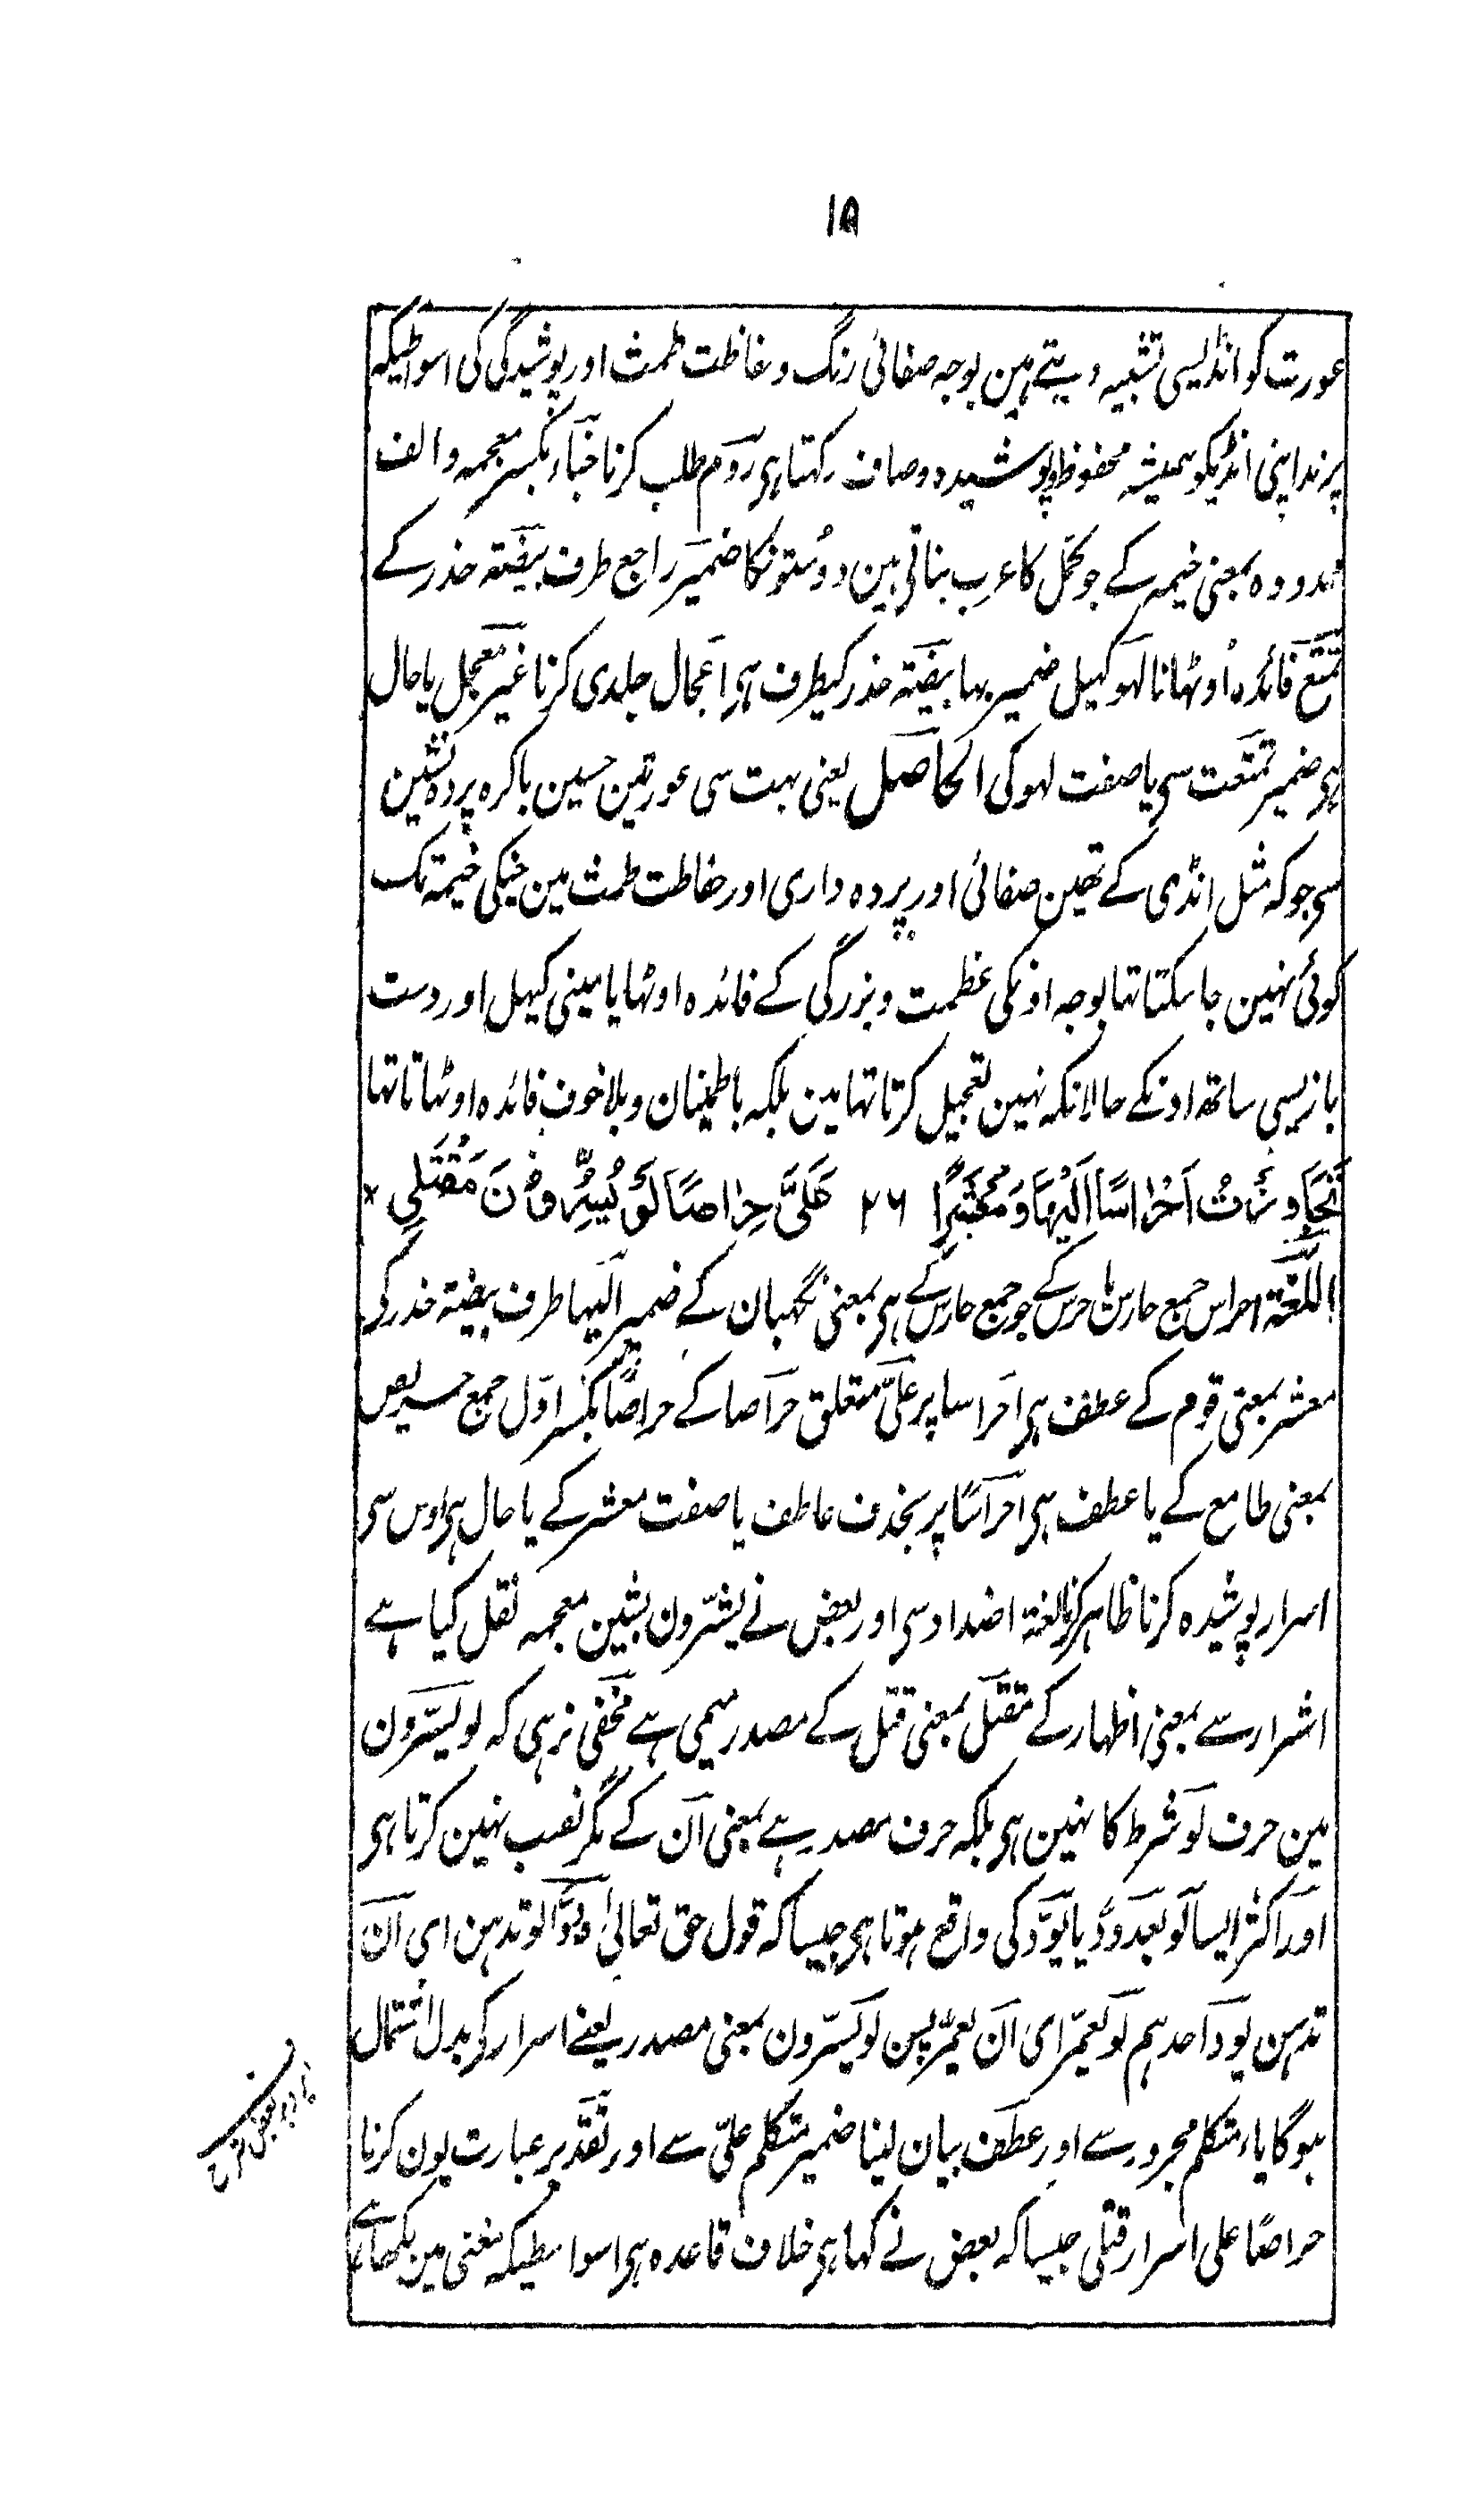 ۱۵
عورت کو انڈیسی تشبیہ دیتے ہین بوجہ صفائی رنگ و حفاظت طمث اور پوشیدگی کی اسواسطیکہ
پرندا اپنی انڈیکو ہمیشہ محفوظ و پوشیدہ و صاف رکہتا ہی رَوم طلب کرنا خبآء بکسر معجمہ و الف
ممدودہ بمعنی خیمہ کے جو کمل کا عرب بناتی ہین دو ستونکا ضمیر راجع طرف بیضۃ خدر کے
تمتّع فائدہ اُوٹہانا لہو کہیل ضمیر بہا بیضۃ خدر کیطرف ہی اعجال جلدی کرنا غیر معجل یا حال
ہی ضمیر تمتعت سی یا صفت لہو کی الحاصل یعنی بہت سی عورتین حسین باکرہ پردہ نشین
سی جو کہ مثل انڈی کے تہین صفائی اور پردہ داری اور حفاظت طمث مین جنکی خیمہ تک
کوئی نہین جا سکتا تہا بوجہ اونکی عظمت و بزرگی کے فائدہ اوٹہایا مینی کہیل اور دست
بازیسی ساتھ اونکے حالانکہ نہین تعجیل کرتا تہا مین بلکہ باطمینان و بلا خوف فائدہ اوٹہاتا تہا
تَجَاوَزْتُ اَحْرَاسًا اِلَيْهَا وَمَعْشَرًا ۲۶ عَلَيَّ حِرَاصًا لَوْ يُسِرُّوْنَ مَقْتَلِي *
اللُّغَة احراس جمع حارس یا حرس کے جو جمع حارس کے ہی بمعنی نگہبان کے ضمیر الیہا طرف بیضۃ خدر کی
معشر بمعنی قوم کے عطف ہی احراسا پر علیَّ متعلق حراصا کے حراصًا بکسر اوّل جمع حریص
بمعنی طامع کے یا عطف ہی احراسًا پر بحذف عاطف یا صفت معشر کے یا حال ہی اوس سی
اسرار پوشیدہ کرنا ظاہر کرنا لغۃ اضداد سی اور بعض نے یشرّون بشین معجمہ نقل کیا ہے
اشرار سے بمعنی اظہار کے مقتل بمعنی قتل کے مصدر میمی ہے مخفی نرہی کہ لو یسرّون
مین حرف لَو شرط کا نہین ہی بلکہ حرف مصدر ہے بمعنی اَن کے مگر نصب نہین کرتا ہی
اور اکثر ایسا لَو بعد وَدَّ یا یَوَدُّ کی واقع ہوتا ہی جیسا کہ قول حق تعالیٰ ودّوا لو تدہن ای اَن
تدہن یود احدہم لو یعمّر ای اَن یعمّر پس لو یسرّون بمعنی مصدر یعنے اسرار کی بدل اشتمال
ہوگا یاء متکلم مجرور سے اور عطف بیان لینا ضمیر متکلم علیّ سے اور تقدیر عبارت یون کرنا
حراصًا علی اسرار قتلی جیسا کہ بعض نے کہا ہی خلاف قاعدہ ہی اسواسطیکہ مغنی مین لکھا ہے